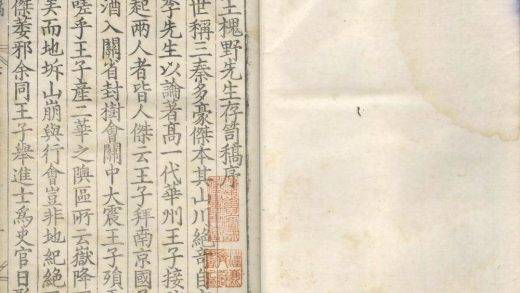 王槐野先生存笥稿序
世稱三秦多豪傑本其山川絶音自
李先生以論著高一代華州王子接
起兩人者皆人傑云王子拜南京國子
酒入關省封樹會關中大震王子殞
嗟乎王子産二華之隩區所云嶽降
矣而地坼山崩與行會豈非地紀絶
傑萎邪余同王子舉進士爲史官日